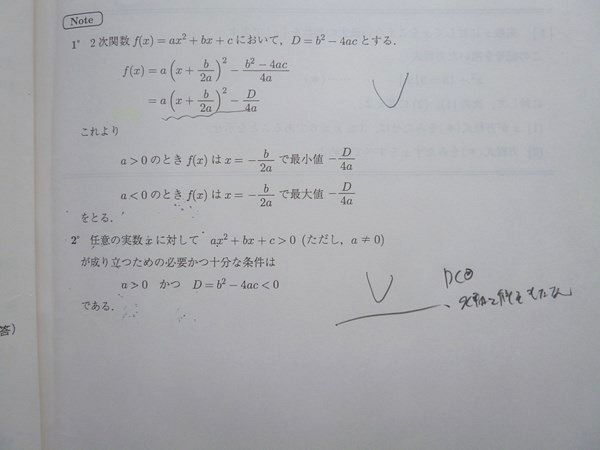 Note
1° 2次関数 f(x) = ax² + bx + c において，D = b² − 4ac とする．
f(x) = a(x + b/2a)² − (b² − 4ac)/4a
= a(x + b/2a)² − D/4a
これより
a > 0 のとき f(x) は x = −b/2a で最小値 −D/4a
a < 0 のとき f(x) は x = −b/2a で最大値 −D/4a
をとる．
2° 任意の実数 x に対して ax² + bx + c > 0 (ただし，a ≠ 0)
が成り立つための必要かつ十分な条件は
a > 0 かつ D = b² − 4ac < 0
である．
答）